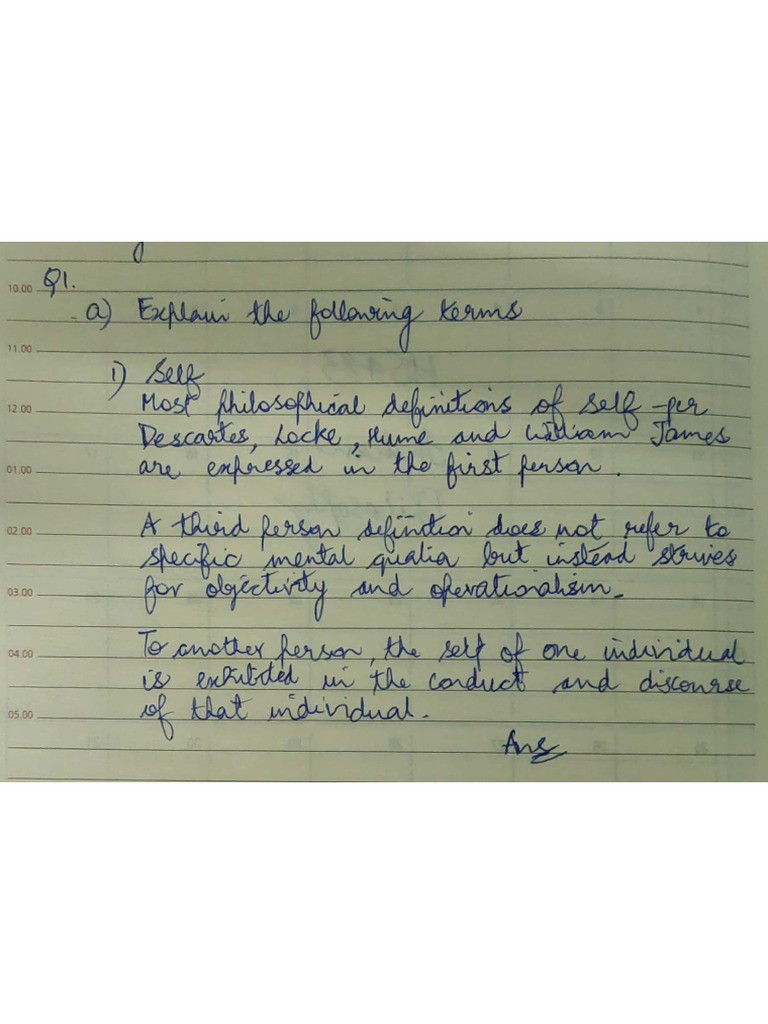 Q1.
10.00
a) Explain the following terms
11.00
i) Self
Most philosophical definitions of self -per
12.00
Descartes, Locke, Hume and William James
01.00
are expressed in the first person.
A third person definition does not refer to
02.00
specific mental qualia but instead strives
03.00
for objectivity and operationalism.
To another person, the self of one individual
04.00
is exhibited in the conduct and discourse
05.00
of that individual.
Ans